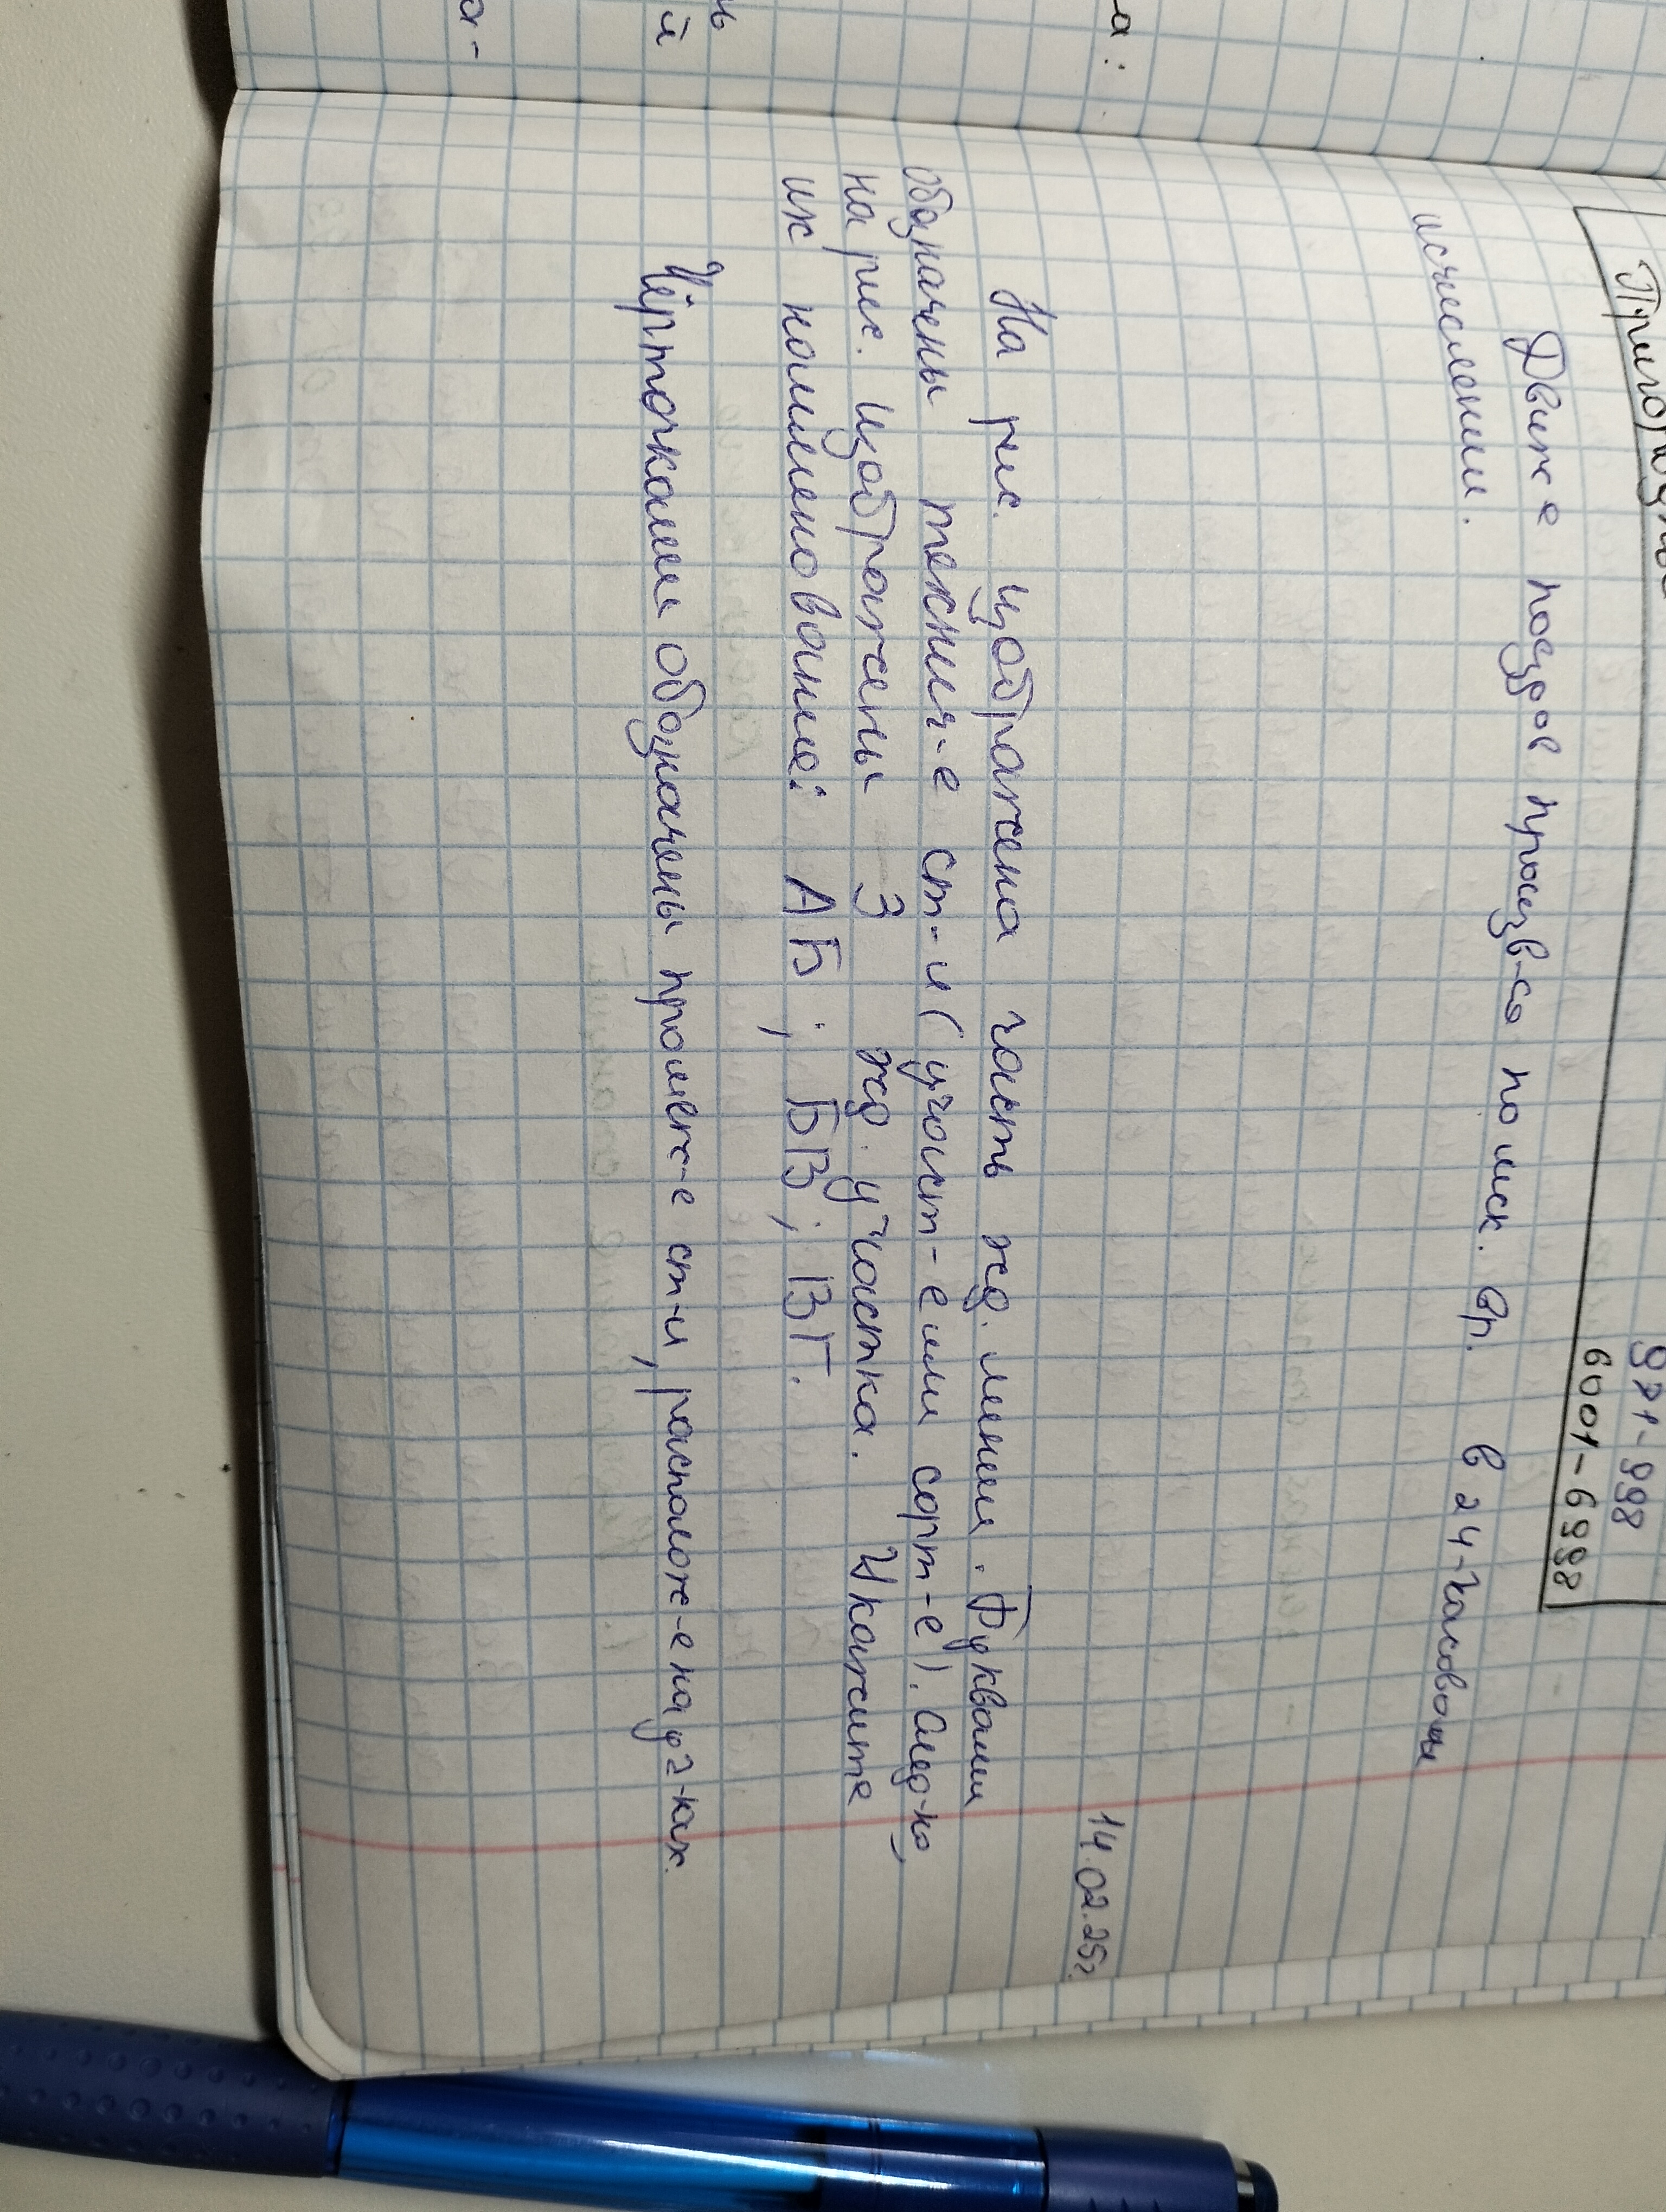 871-898
6001-6998
Движ-е поездов произв-ся по мск. вр. в 24-часовом
исчислении.
14.02.25г.
На рис. изображена часть жд. линии. Буквами
обозначены технич-е ст-и (участ-е или сорт-е). След-но,
на рис. изображены 3 жд. участка. Укажите
их наименование: АБ; БВ; ВГ.
Чёрточками обозначены промеж-е ст-и, располож-е на уч-ках.